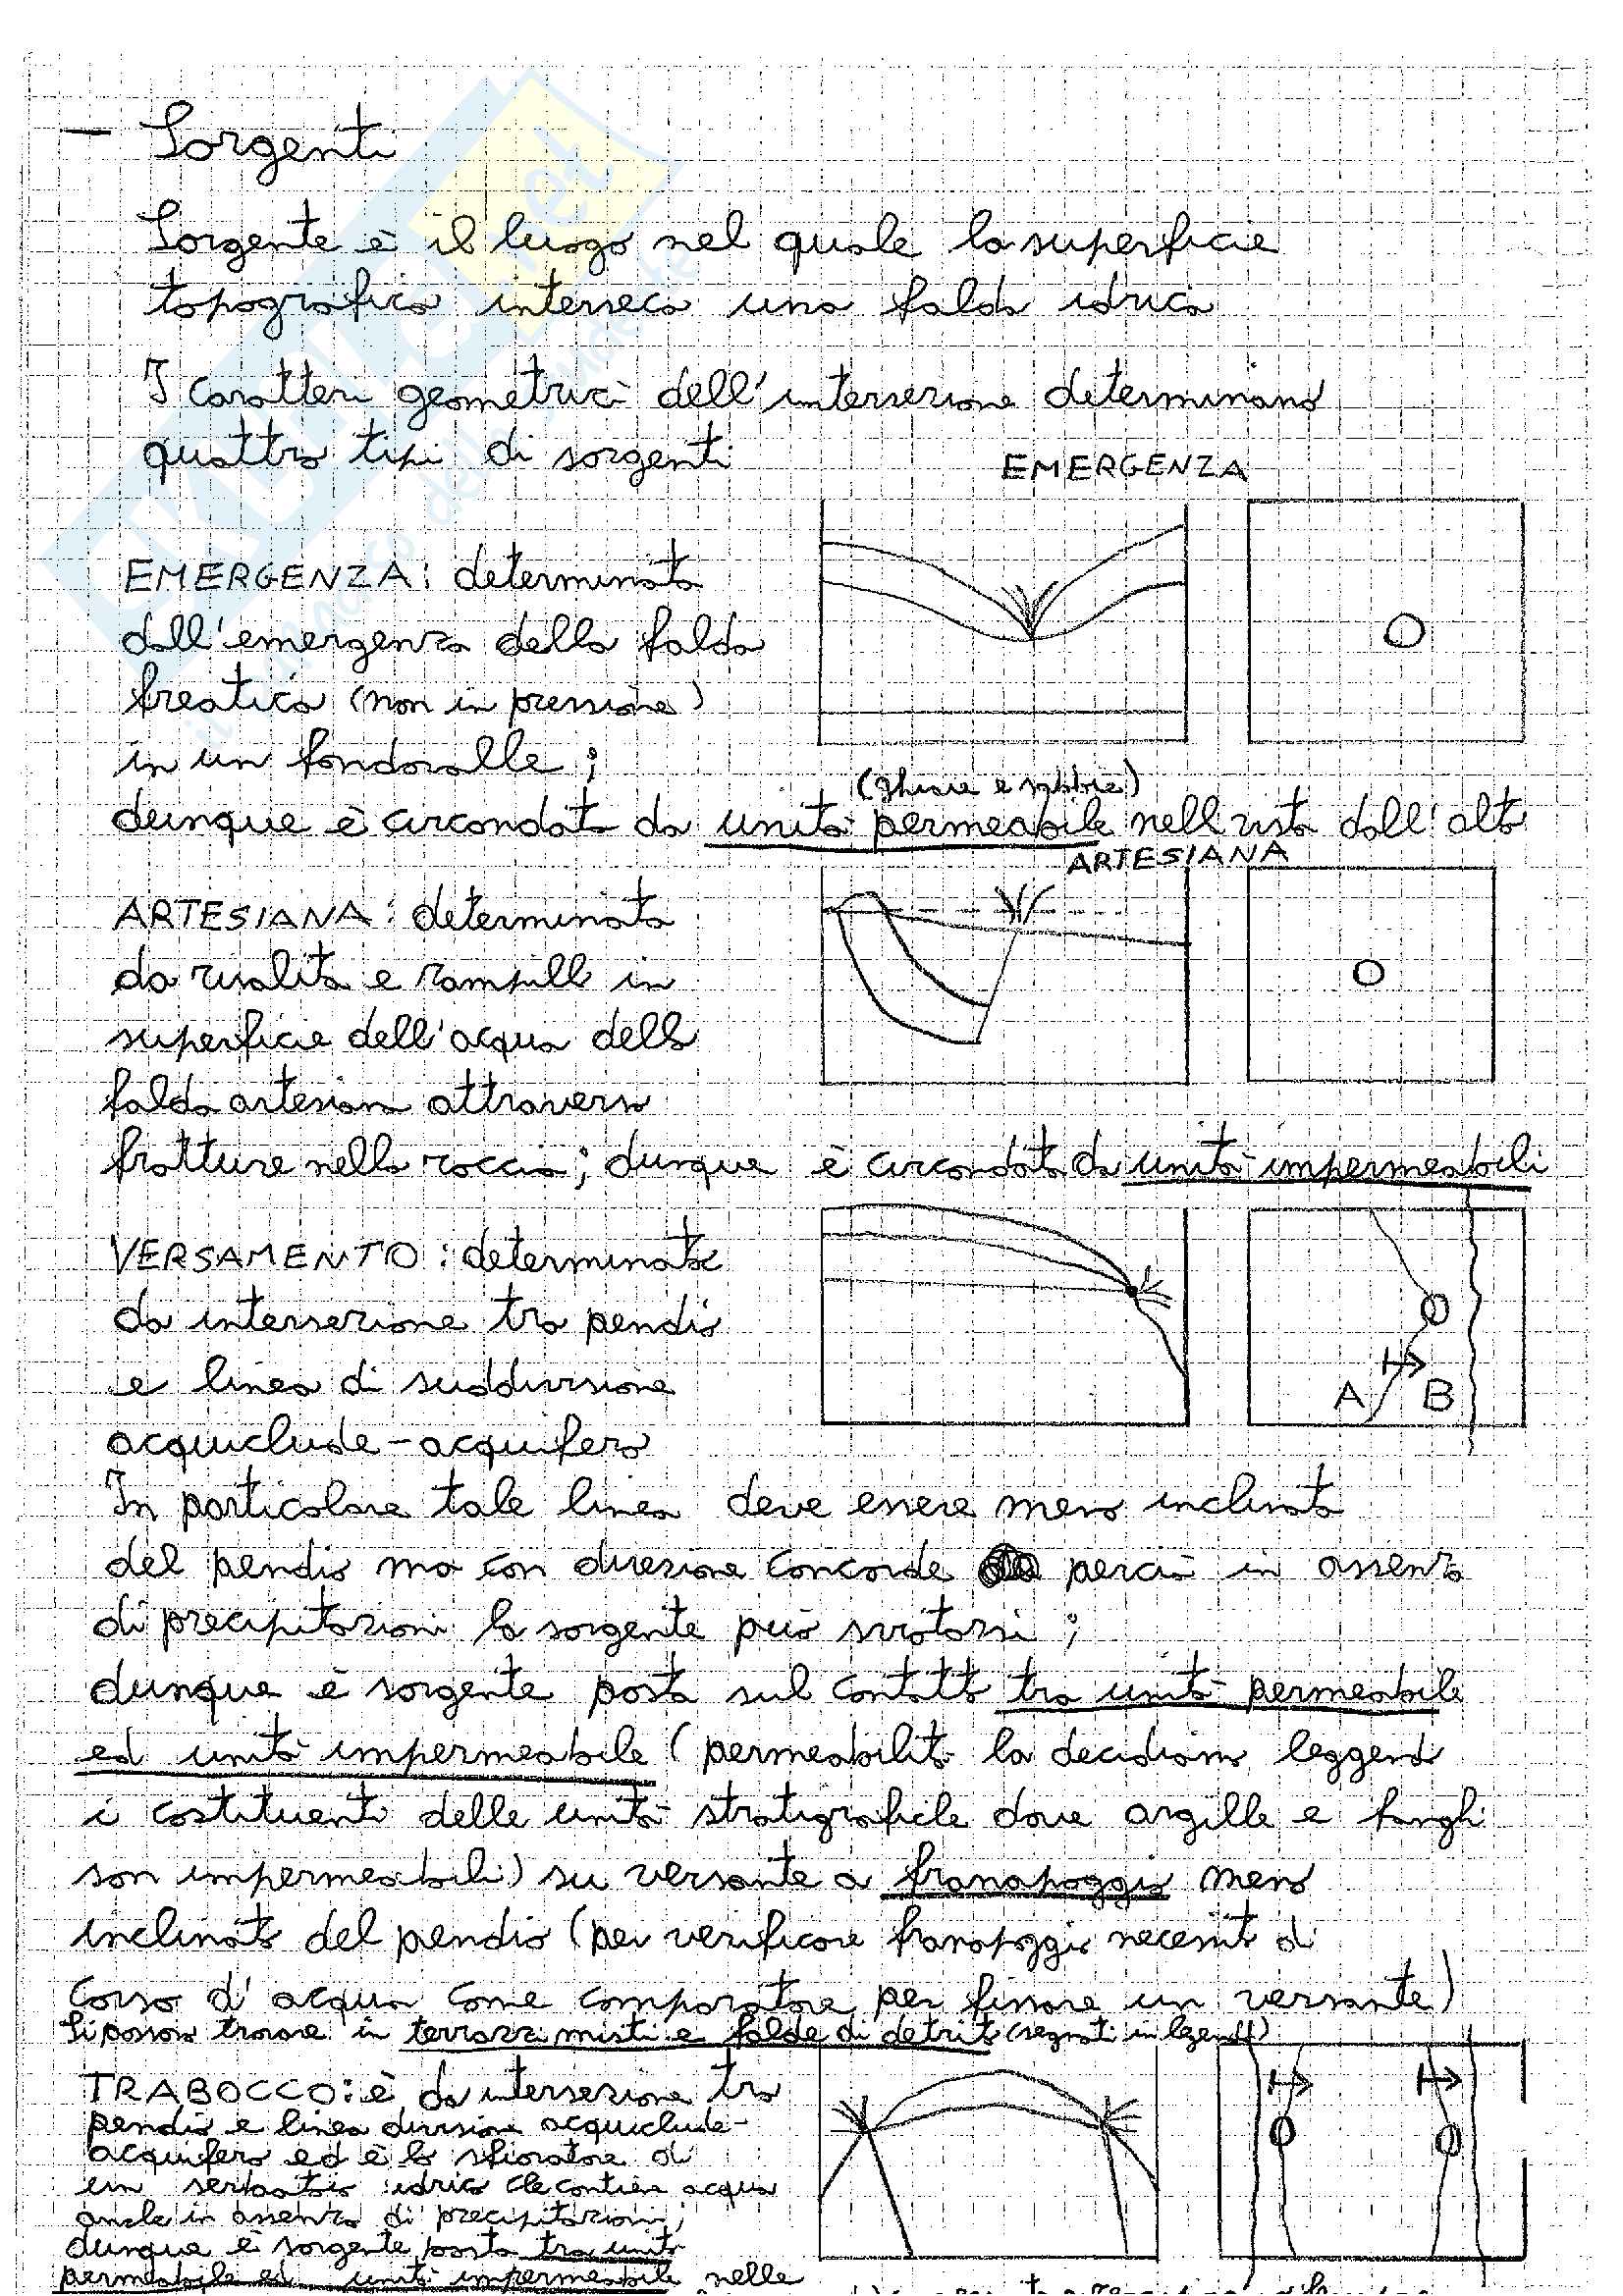 – Sorgenti
Sorgente è il luogo nel quale la superficie
topografica interseca una falda idrica
I caratteri geometrici dell'intersezione determinano
quattro tipi di sorgenti
EMERGENZA
EMERGENZA: determinata
dall'emergenza della falda
freatica (non in pressione)
in un fondovalle;
(ghiaie e sabbie)
dunque è circondata da unità permeabile nell vista dall'alto
ARTESIANA
ARTESIANA: determinata
da risalita e zampilli in
superficie dell'acqua della
falda artesiana attraverso
fratture nella roccia; dunque è circondata da unità impermeabili
VERSAMENTO: determinata
da intersezione tra pendio
e linea di suddivisione
A B
acquiclude-acquifero
In particolare tale linea deve essere meno inclinata
del pendio ma con direzione concorde perciò in assenza
di precipitazioni la sorgente può svuotarsi;
dunque è sorgente posta sul contatto tra unità permeabile
ed unità impermeabile (permeabilità la decidiamo leggendo
i costituenti delle unità stratigrafiche dove argille e fanghi
son impermeabili) su versante a franapoggio meno
inclinato del pendio (per verificare franapoggio necessito di
corso d'acqua come comparatore per fissare un versante)
Si possono trovare in terrazzi misti e falde di detrito (segnati in legenda)
TRABOCCO: è da intersezione tra
pendio e linea divisione acquiclude-
acquifero ed è lo sfioratore di
un serbatoio idrico che contiene acqua
anche in assenza di precipitazioni;
dunque è sorgente posta tra unità
permeabile ed unità impermeabile nelle